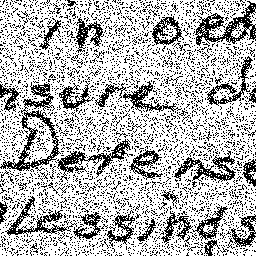 in ord
nsure do
Defense
Lessings